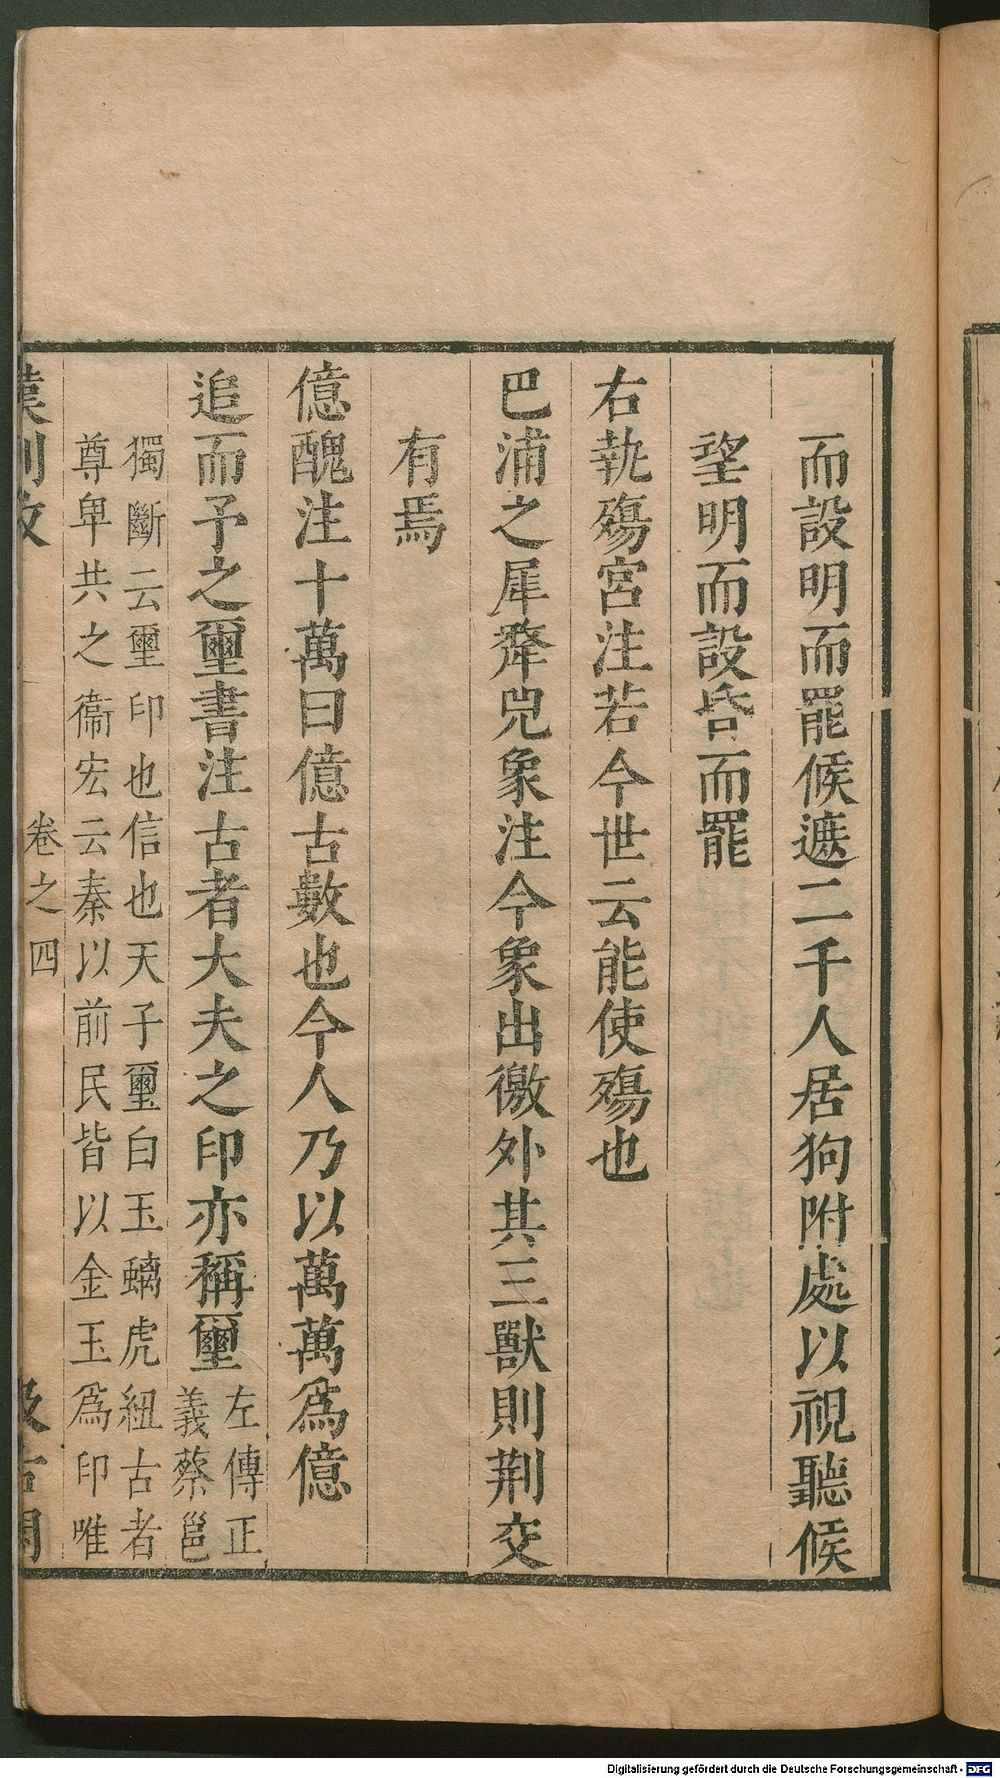 而設明而罷候遮二千人居狗附處以視聽候
望明而設昏而罷
右執殤宮注若今世云能使殤也
巴浦之犀犛兕象注今象出徼外其三獸則荆交
有焉
億醜注十萬曰億古數也今人乃以萬萬爲億
追而予之璽書注古者大夫之印亦稱璽左傳正
義蔡邕
獨斷云璽印也信也天子璽白玉螭虎紐古者
尊卑共之衞宏云秦以前民皆以金玉爲印唯
漢制攷 卷之四 汲古閣
Digitalisierung gefördert durch die Deutsche Forschungsgemeinschaft - DFG